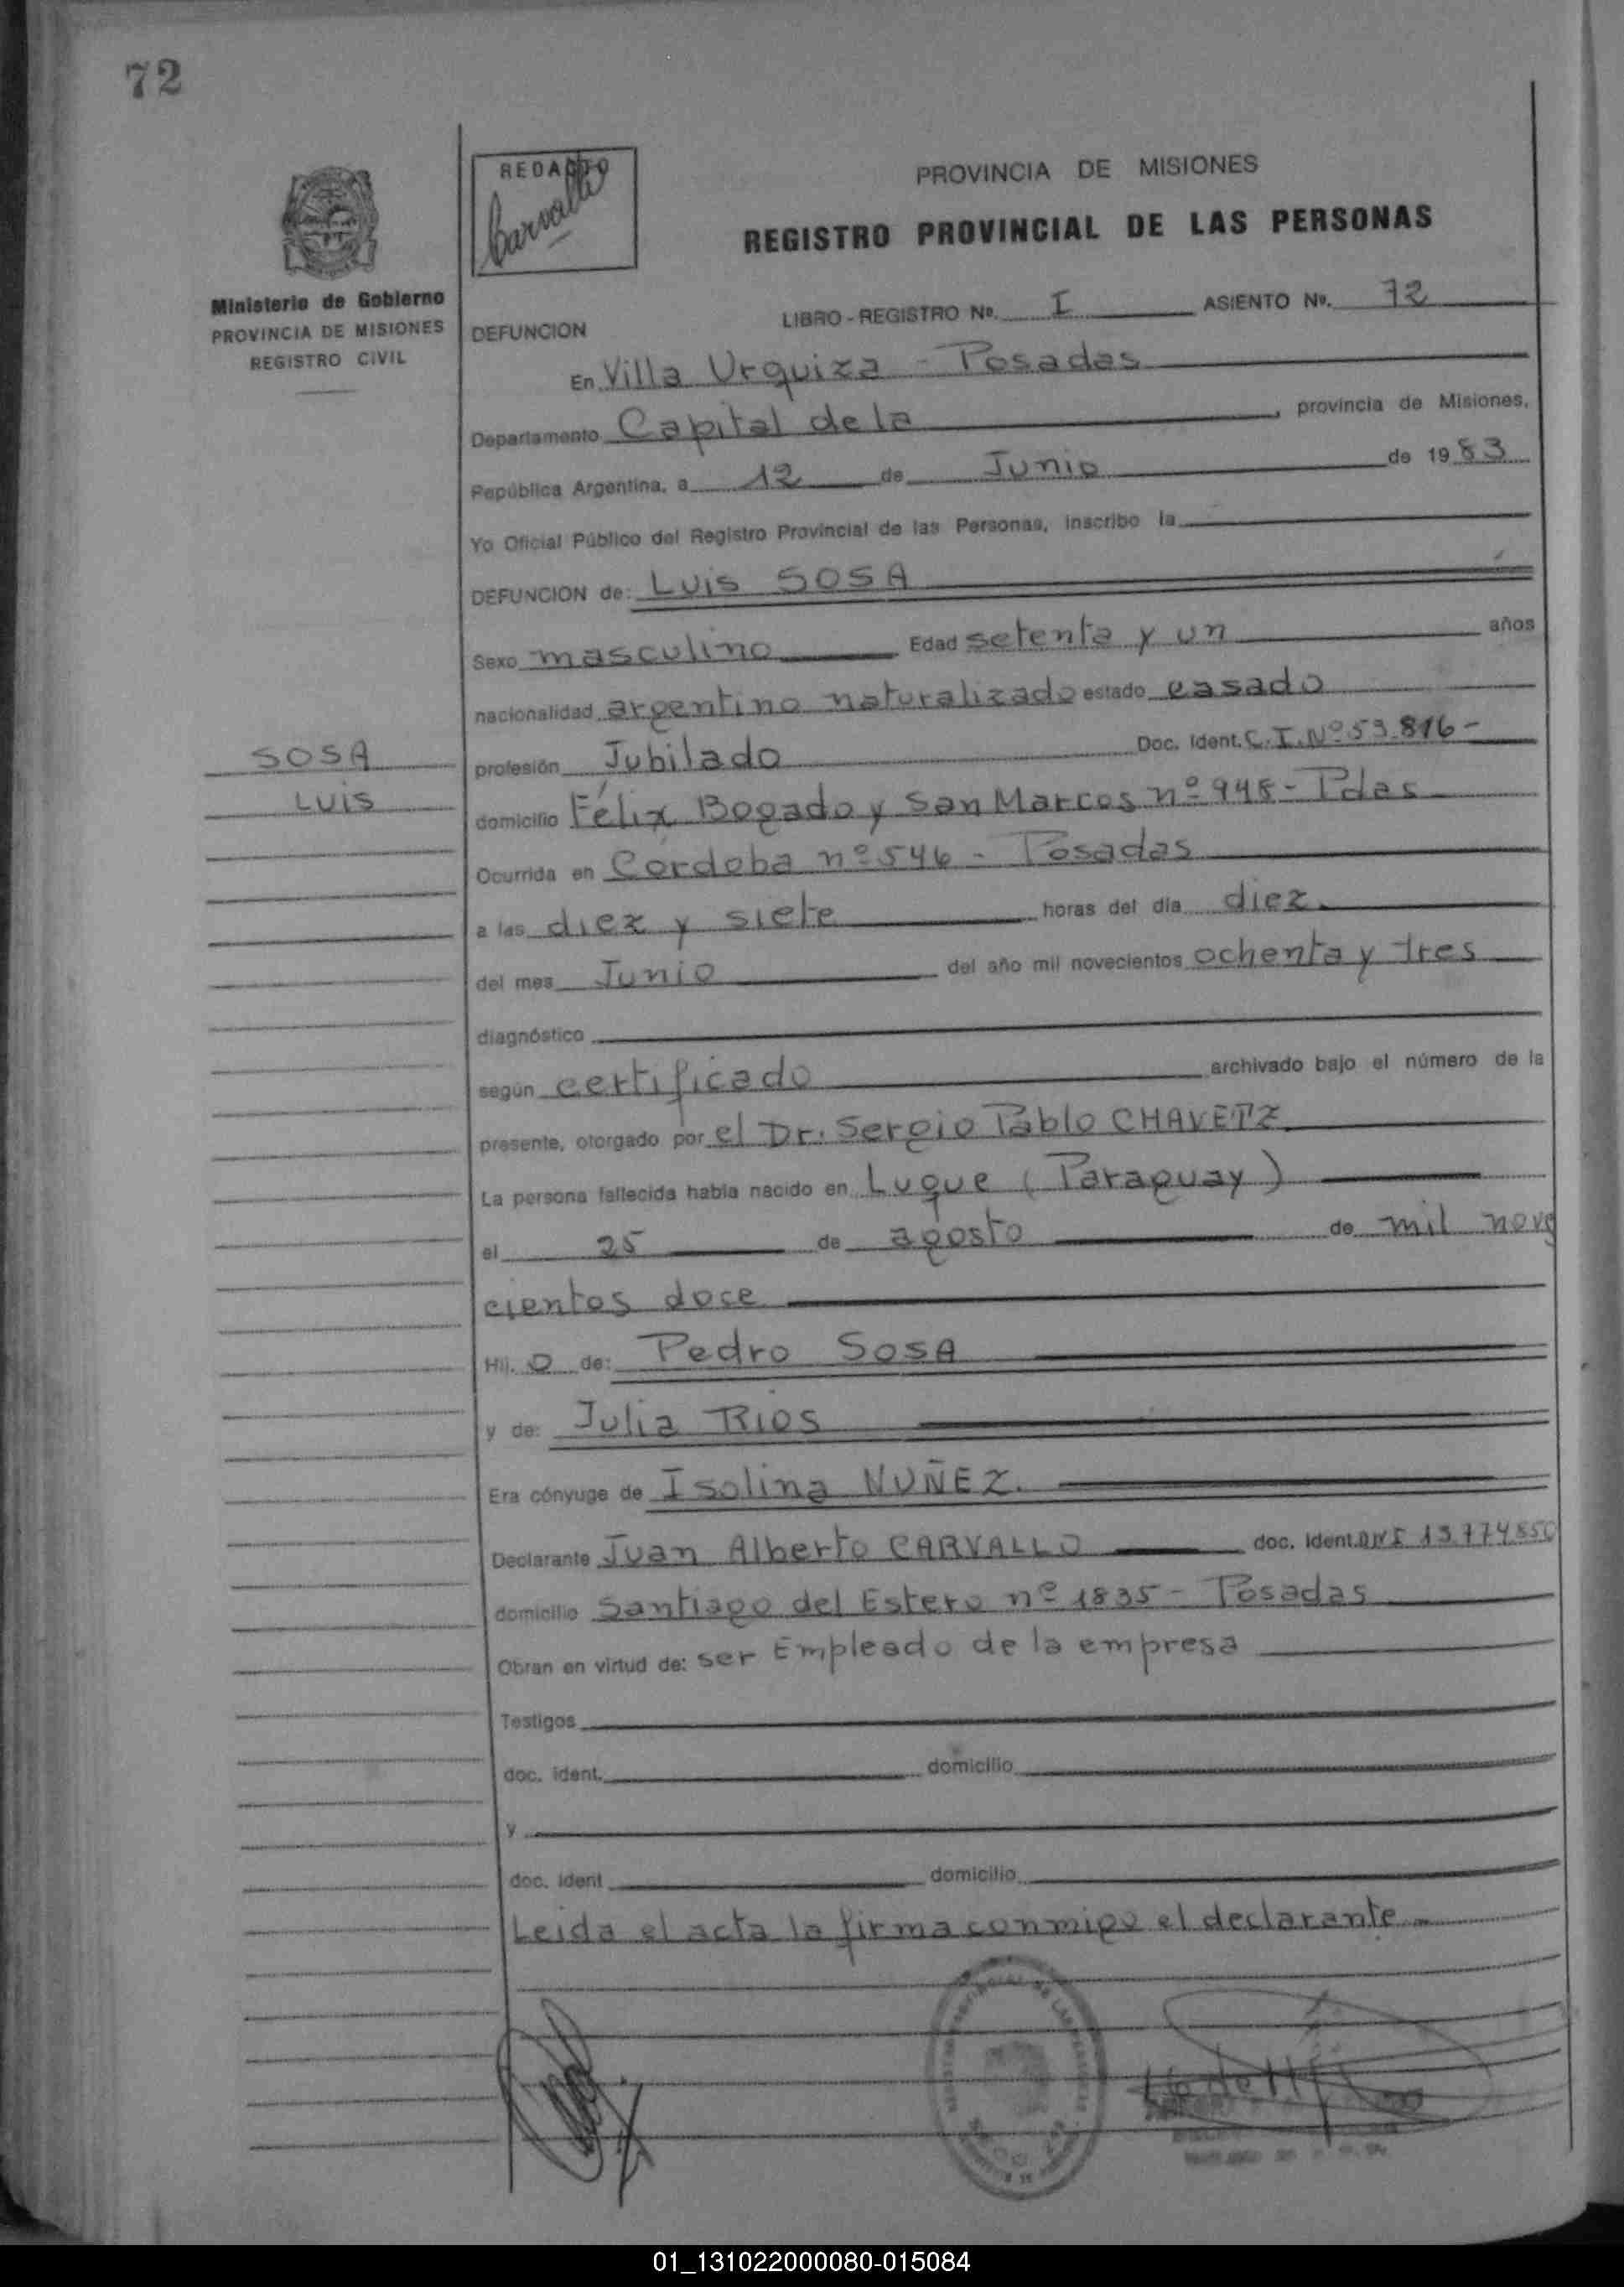 72
REDACTO
Carvallo
PROVINCIA DE MISIONES
REGISTRO PROVINCIAL DE LAS PERSONAS
Ministerio de Gobierno
PROVINCIA DE MISIONES
REGISTRO CIVIL
LIBRO - REGISTRO Nº. I ASIENTO Nº. 72
DEFUNCION
En Villa Urquiza - Posadas
Departamento Capital de la , provincia de Misiones,
República Argentina, a 12 de Junio de 1983
Yo Oficial Público del Registro Provincial de las Personas, inscribo la
DEFUNCION de: Luis SOSA
Sexo masculino Edad setenta y un años
nacionalidad argentino naturalizado estado casado
SOSA
LUIS
profesión Jubilado Doc. Ident. C.I. Nº 53.816-
domicilio Félix Bogado y San Marcos nº 948 - Pdas
Ocurrida en Córdoba nº 546 - Posadas
a las diez y siete horas del día diez.
del mes Junio del año mil novecientos ochenta y tres
diagnóstico
según certificado archivado bajo el número de la
presente, otorgado por el Dr. Sergio Pablo CHAVETZ
La persona fallecida había nacido en Luque (Paraguay)
el 25 de agosto de mil nove
cientos doce
Hij. o de: Pedro SOSA
y de: Julia RIOS
Era cónyuge de Isolina NUÑEZ.
Declarante Juan Alberto CARVALLO doc. Ident. DNI 13.774.850
domicilio Santiago del Estero nº 1835 - Posadas
Obran en virtud de: ser Empleado de la empresa
Testigos
doc. ident. domicilio
y
doc. ident domicilio
Leida el acta la firma conmigo el declarante
01_131022000080-015084